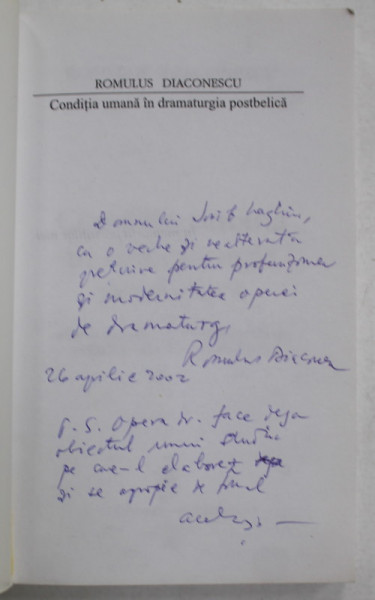 ROMULUS DIACONESCU
Condiția umană în dramaturgia postbelică
Domnului Iosif Naghiu,
cu o veche și reiterată
prețuire pentru profunzimea
și modernitatea operei
de dramaturg,
Romulus Diaconescu
26 aprilie 2002
P.S. Opera dv. face deja
obiectul unui studiu
pe care-l elaborez
și se apropie de final
același